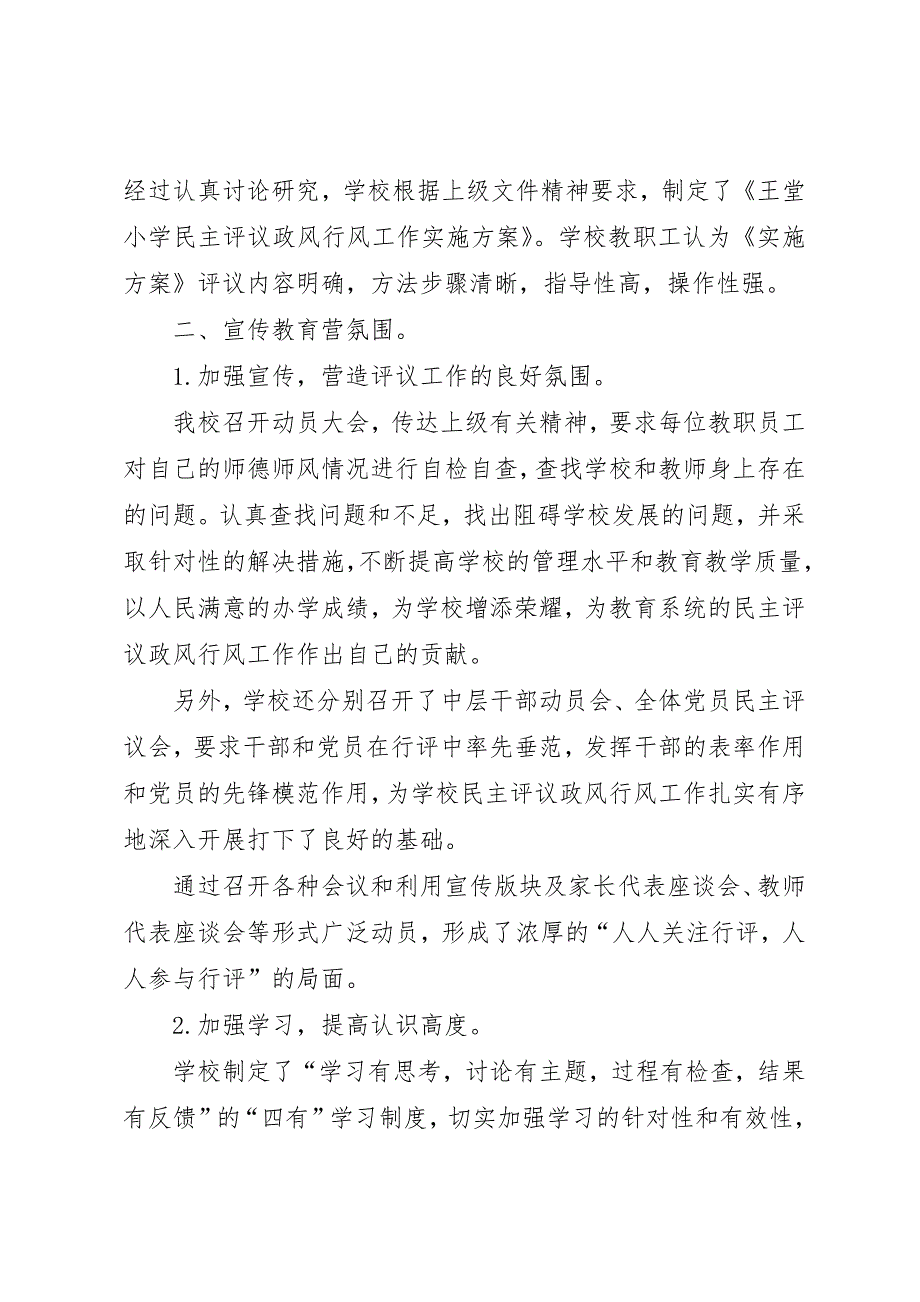 经过认真讨论研究，学校根据上级文件精神要求，制定了《王堂
小学民主评议政风行风工作实施方案》。学校教职工认为《实施
方案》评议内容明确，方法步骤清晰，指导性高，操作性强。
二、宣传教育营氛围。
1.加强宣传，营造评议工作的良好氛围。
我校召开动员大会，传达上级有关精神，要求每位教职员工
对自己的师德师风情况进行自检自查，查找学校和教师身上存在
的问题。认真查找问题和不足，找出阻碍学校发展的问题，并采
取针对性的解决措施，不断提高学校的管理水平和教育教学质量，
以人民满意的办学成绩，为学校增添荣耀，为教育系统的民主评
议政风行风工作作出自己的贡献。
另外，学校还分别召开了中层干部动员会、全体党员民主评
议会，要求干部和党员在行评中率先垂范，发挥干部的表率作用
和党员的先锋模范作用，为学校民主评议政风行风工作扎实有序
地深入开展打下了良好的基础。
通过召开各种会议和利用宣传版块及家长代表座谈会、教师
代表座谈会等形式广泛动员，形成了浓厚的“人人关注行评，人
人参与行评”的局面。
2.加强学习，提高认识高度。
学校制定了“学习有思考，讨论有主题，过程有检查，结果
有反馈”的“四有”学习制度，切实加强学习的针对性和有效性，